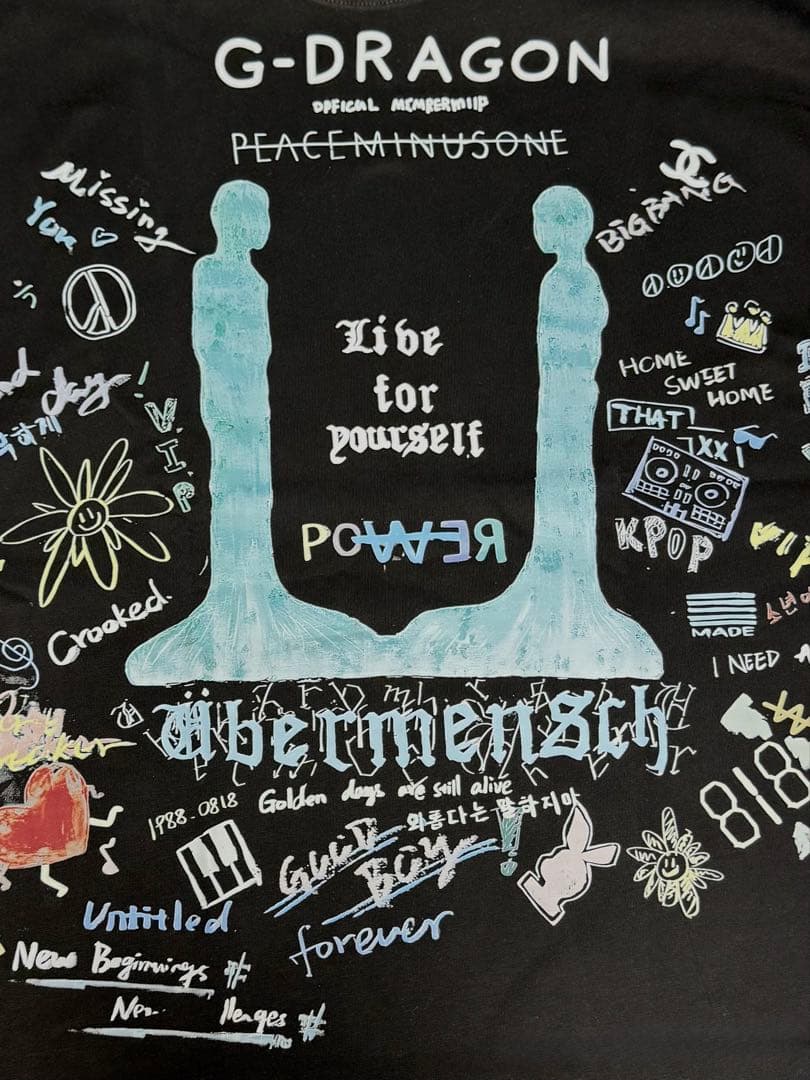 G-DRAGON
OFFICAL MEMBERMIIP
PEACEMINUSONE
Missing
You
BIGBANG
Live
for
yourself
HOME
SWEET
HOME
THAT
XX
V.I.P
POWER
KPOP
VIP
MADE
Crooked.
I NEED
Übermensch
1988-0818
Golden days are still alive
와롭다는 말하지마
818
GOOD
BOY
Untitled
forever
New Beginnings #